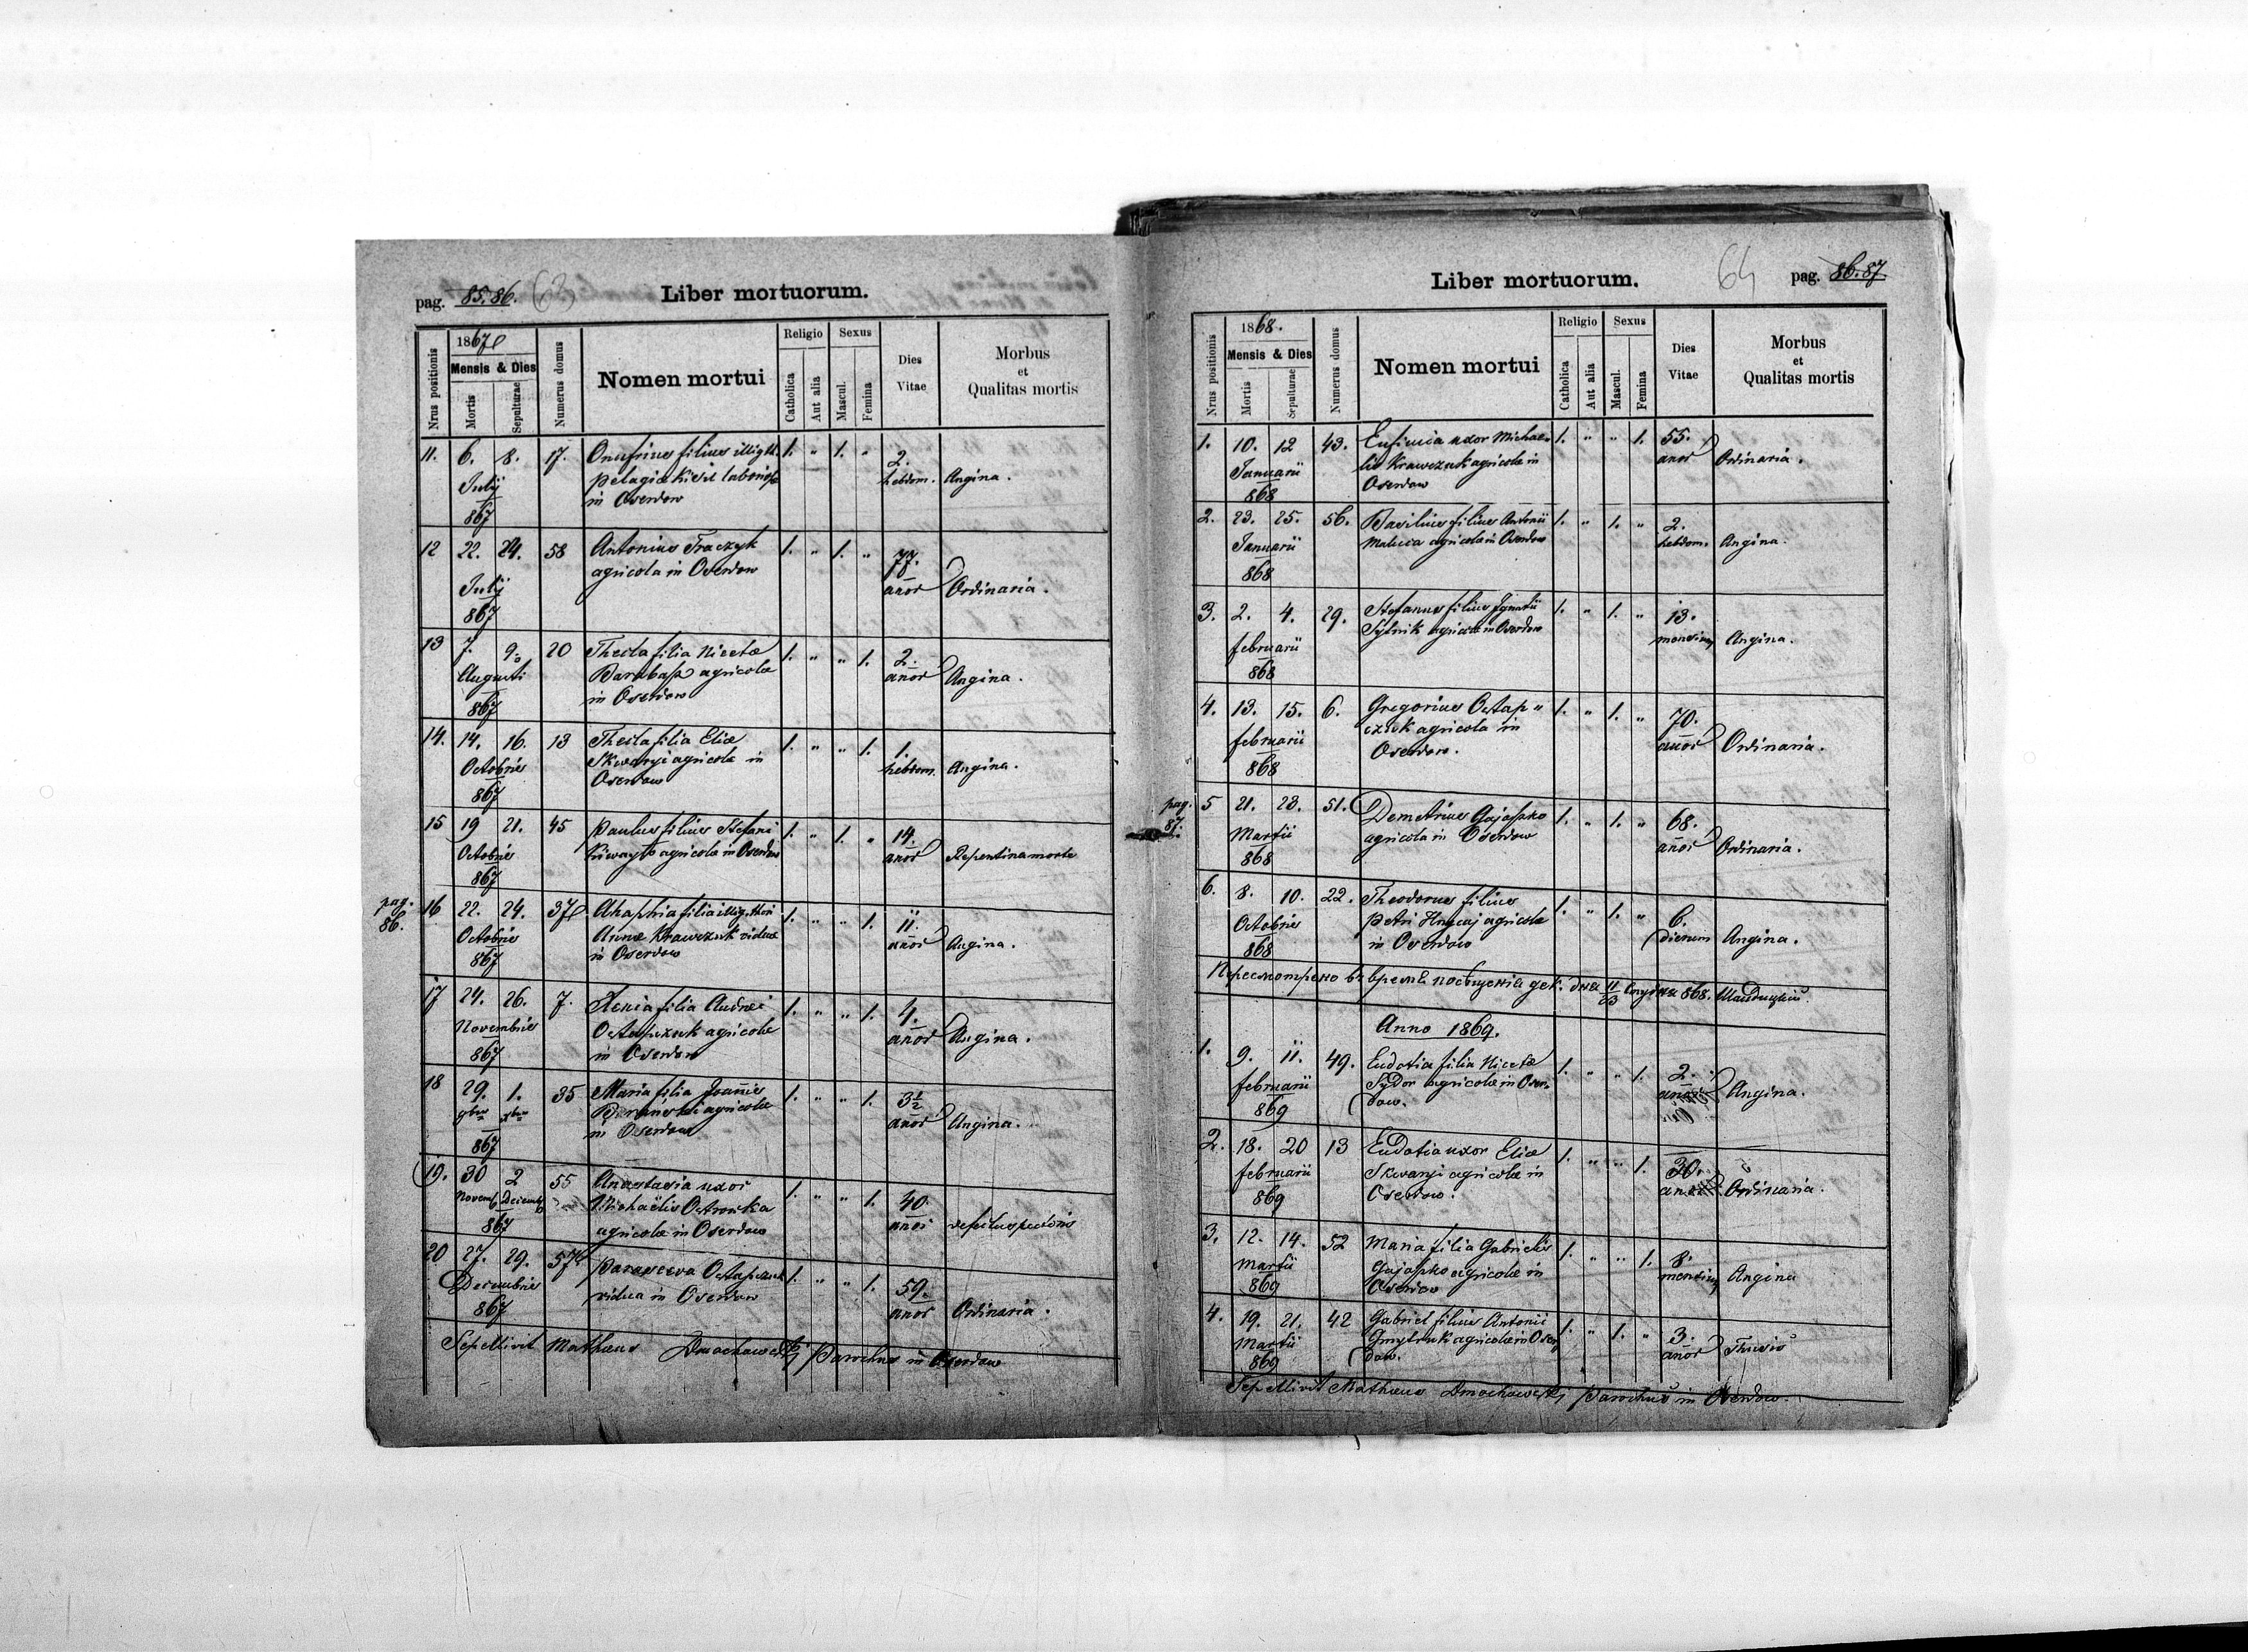 pag. 85.86. (63)
Liber mortuorum.
Nrus positionis
1867
Mensis & Dies
Mortis
Sepulturae
Numerus domus
Nomen mortui
Religio
Catholica
Aut alia
Sexus
Mascul.
Femina
Dies
Vitae
Morbus
et
Qualitas mortis
11. 6. 8. 17. Onufrius filius illigth. 1. " 1. " 2.
July Pelagiæ laboriosæ hebdom. Angina.
867 in Oserdow
12 22. 24. 58 Antonius Traczyk 1. " 1. " 77.
July agricola in Oserdow anor Ordinaria.
867
13 7. 9. 20 Thecla filia Nicetæ 1. " " 1. 2.
Augusti agricolæ anor Angina.
867 in Oserdow
14. 14. 16. 13 Thecla filia Eliæ 1. " " 1. 1.
Octobris Skwaryi agricolæ in hebdom. Angina.
867 Oserdow
15 19 21. 45 Paulus filius Stefani 1. " 1. " 14.
Octobris agricolæ in Oserdow anor Repentina morte
867
pag.
86.
16 22. 24. 37 Ahaphia filia 1. " " 1. 11.
Octobris Annæ Krawczuk viduæ anor Angina.
867 in Oserdow
17 24. 26. 7. Xenia filia Andrei 1. " " 1. 4.
Novembris Ostapczuk agricolæ anor Angina.
867 in Oserdow
18 29. 1. 35 Maria filia Joannis 1. " " 1. 3½
agricolæ anor Angina.
867 in Oserdow
19. 30 2 55 Anastasia uxor 1. " " 1. 40.
Novemb Decemb Michaëlis anor defectus pectoris
867 agricolæ in Oserdow
20 27. 29. 57 Parasceva Ostapczuk 1. " " 1. 59.
Decembris vidua in Oserdow anor Ordinaria.
867
Sepellivit Mathæus Dmochowski Parochus in Oserdow
Liber mortuorum.
64 pag. 86.87
Nrus positionis
1868.
Mensis & Dies
Mortis
Sepulturae
Numerus domus
Nomen mortui
Religio
Catholica
Aut alia
Sexus
Mascul.
Femina
Dies
Vitae
Morbus
et
Qualitas mortis
1. 10. 12 43. Eufimia uxor Michae- 1. " " 1. 55.
Januarii lis Krawczuk agricolæ in anor Ordinaria.
868 Oserdow
2. 23. 25. 56. Basilius filius Antonii 1. " 1. " 2.
Januarii agricolæ in Oserdow hebdom. Angina.
868
3. 2. 4. 29. Stefanus filius Ignatii 1. " 1. " 13.
februarii Sytnik agricolæ in Oserdow mensium Angina.
868
4. 13. 15. 6. Gregorius Ostap" 1. " 1. " 70.
februarii czuk agricola in anor Ordinaria.
868 Oserdow.
pag.
87.
5 21. 23. 51. Demetrius Gajapko 1. " 1. " 68.
Martii agricola in Oserdow anor Ordinaria.
868
6. 8. 10. 22. Theodorus filius 1. " 1. " 6.
Octobris Petri Hrycaj agricolæ dierum Angina.
868 in Oserdow
Пересмотрено въ время посѣщенія дек. дня 11/23 868.
Anno 1869.
1. 9. 11. 49. Eudotia filia Nicetæ 1. " " 1. 2.
februarii Sydor agricolæ in Oser- anor Angina.
869 dow.
2. 18. 20 13 Eudotia uxor Eliæ 1. " " 1. 30.
februarii Skwaryi agricolæ in anor Ordinaria.
869 Oserdow.
3. 12. 14. 52 Maria filia Gabrielis 1. " " 1. 8.
Martii Gajapko agricolæ in mensium Angina
869 Oserdow
4. 19. 21. 42 Gabriel filius Antonii 1. " 1. " 3.
Martii Dmytruk agricolæ in Oser- anor Thisis
869 dow.
Sepellivit Mathæus Dmochowski Parochus in Oserdow.